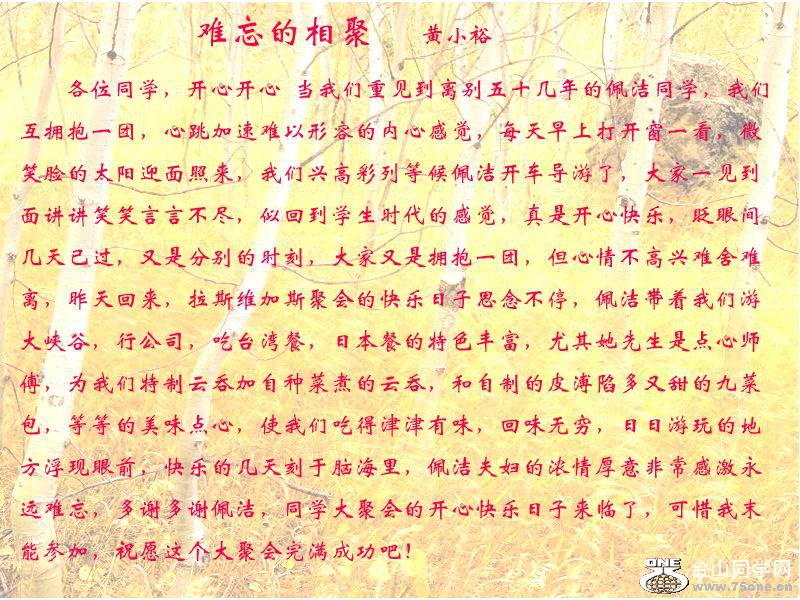 难忘的相聚 黄小裕
各位同学，开心开心 当我们重见到离别五十几年的佩洁同学，我们
互拥抱一团，心跳加速难以形容的内心感觉，每天早上打开窗一看，微
笑脸的太阳迎面照来，我们兴高彩列等候佩洁开车导游了，大家一见到
面讲讲笑笑言言不尽，似回到学生时代的感觉，真是开心快乐，眨眼间
几天已过，又是分别的时刻，大家又是拥抱一团，但心情不高兴难舍难
离，昨天回来，拉斯维加斯聚会的快乐日子思念不停，佩洁带着我们游
大峡谷，行公司，吃台湾餐，日本餐的特色丰富，尤其她先生是点心师
傅，为我们特制云吞加自种菜煮的云吞，和自制的皮溥陷多又甜的九菜
包，等等的美味点心，使我们吃得津津有味，回味无穷，日日游玩的地
方浮现眼前，快乐的几天刻于脑海里，佩洁夫妇的浓情厚意非常感激永
远难忘，多谢多谢佩洁，同学大聚会的开心快乐日子来临了，可惜我末
能参加，祝愿这个大聚会完满成功吧！
ONE 台山同学网
www.75one.cn